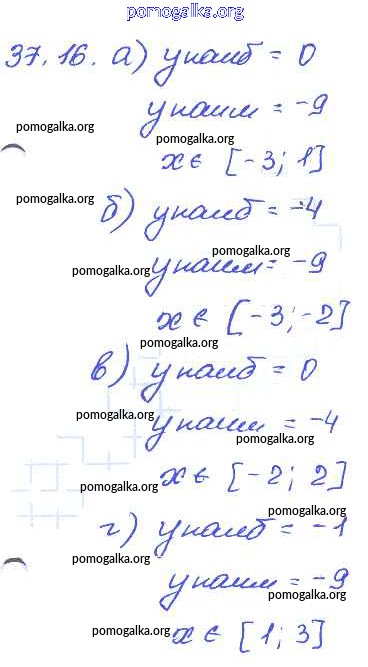 pomogalka.org
37.16. а) yнаиб = 0
yнаим = -9
pomogalka.org
pomogalka.org
x ∈ [-3; 1]
pomogalka.org
б) yнаиб = -4
pomogalka.org
yнаим = -9
pomogalka.org
x ∈ [-3; -2]
pomogalka.org
в) yнаиб = 0
pomogalka.org
yнаим = -4
pomogalka.org
x ∈ [-2; 2]
pomogalka.org
г) yнаиб = -1
pomogalka.org
yнаим = -9
pomogalka.org
x ∈ [1; 3]